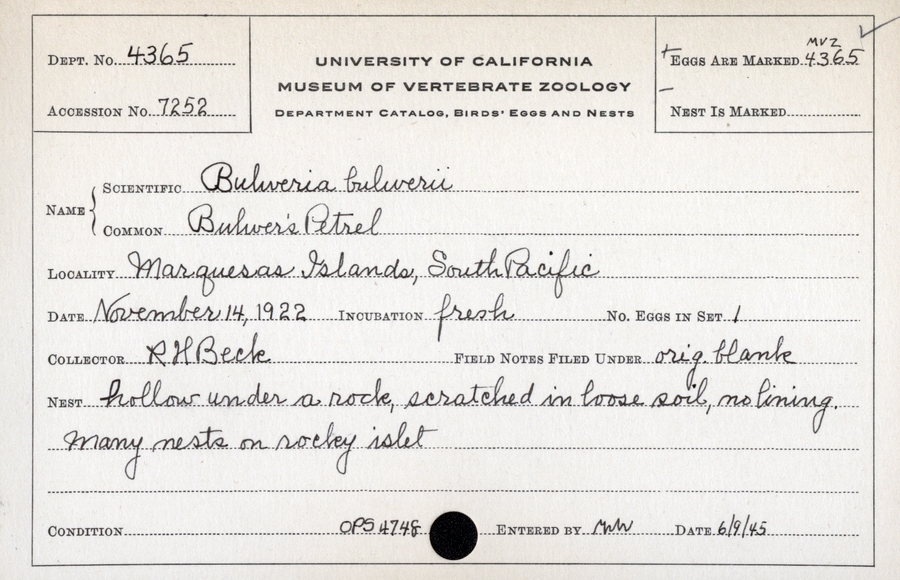 DEPT. NO. 4365
ACCESSION NO. 7252
UNIVERSITY OF CALIFORNIA
MUSEUM OF VERTEBRATE ZOOLOGY
DEPARTMENT CATALOG, BIRDS' EGGS AND NESTS
MVZ
+ EGGS ARE MARKED 4365
– NEST IS MARKED
NAME
SCIENTIFIC Bulweria bulwerii
COMMON Bulwer's Petrel
LOCALITY Marquesas Islands, South Pacific
DATE November 14, 1922 INCUBATION fresh NO. EGGS IN SET 1
COLLECTOR R H Beck FIELD NOTES FILED UNDER orig. blank
NEST hollow under a rock, scratched in loose soil, no lining.
Many nests on rocky islet
CONDITION OPS 4748 ENTERED BY DATE 6/9/45